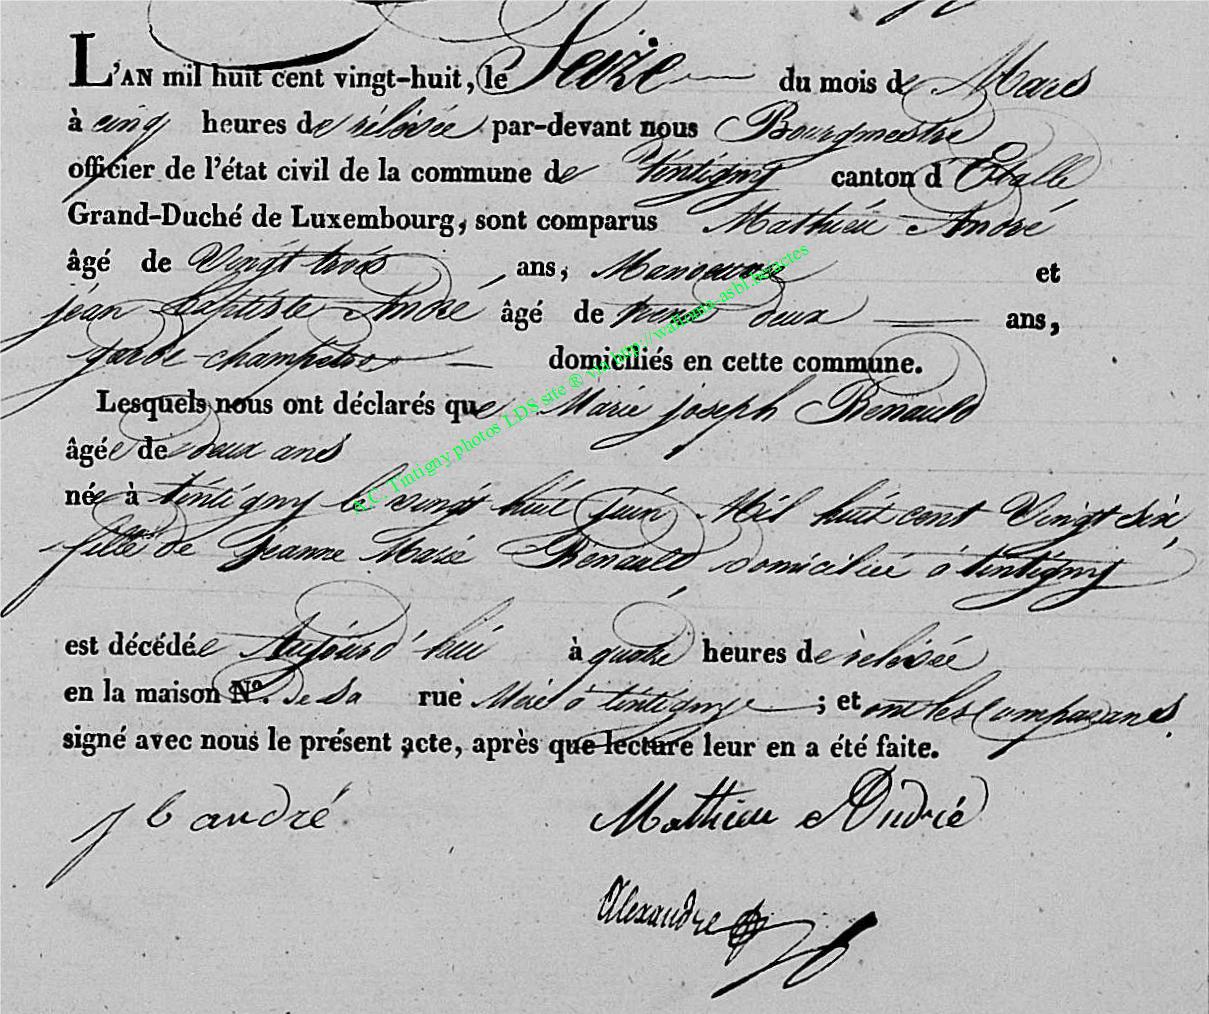 L'AN mil huit cent vingt-huit, le Seize du mois de Mars
à cinq heures de rélévée par-devant nous Bourgmestre
officier de l'état civil de la commune de Tintigny canton d Etalle
Grand-Duché de Luxembourg, sont comparus Mathieu André
âgé de Vingt trois ans, Manoeuvre et
jéan Baptiste André âgé de trente deux ans,
garde-champetre domiciliés en cette commune.
Lesquels nous ont déclarés que Marie joseph Renauld
âgée de deux ans
née à tintigny le vingt huit juin Mil huit cent Vingt Six
fille de Jeanne Marie Renauld domiciliée à tintigny
est décédée Aujourd'hui à quatre heures de rélévée
en la maison N°. de Sa rue Mère à tintigny ; et ont les Comparans
signé avec nous le présent acte, après que lecture leur en a été faite.
j b andré
Mathieu André
Alexandre
A.C. Tintigny photos LDS site ® via http://wallonia-asbl.be/actes